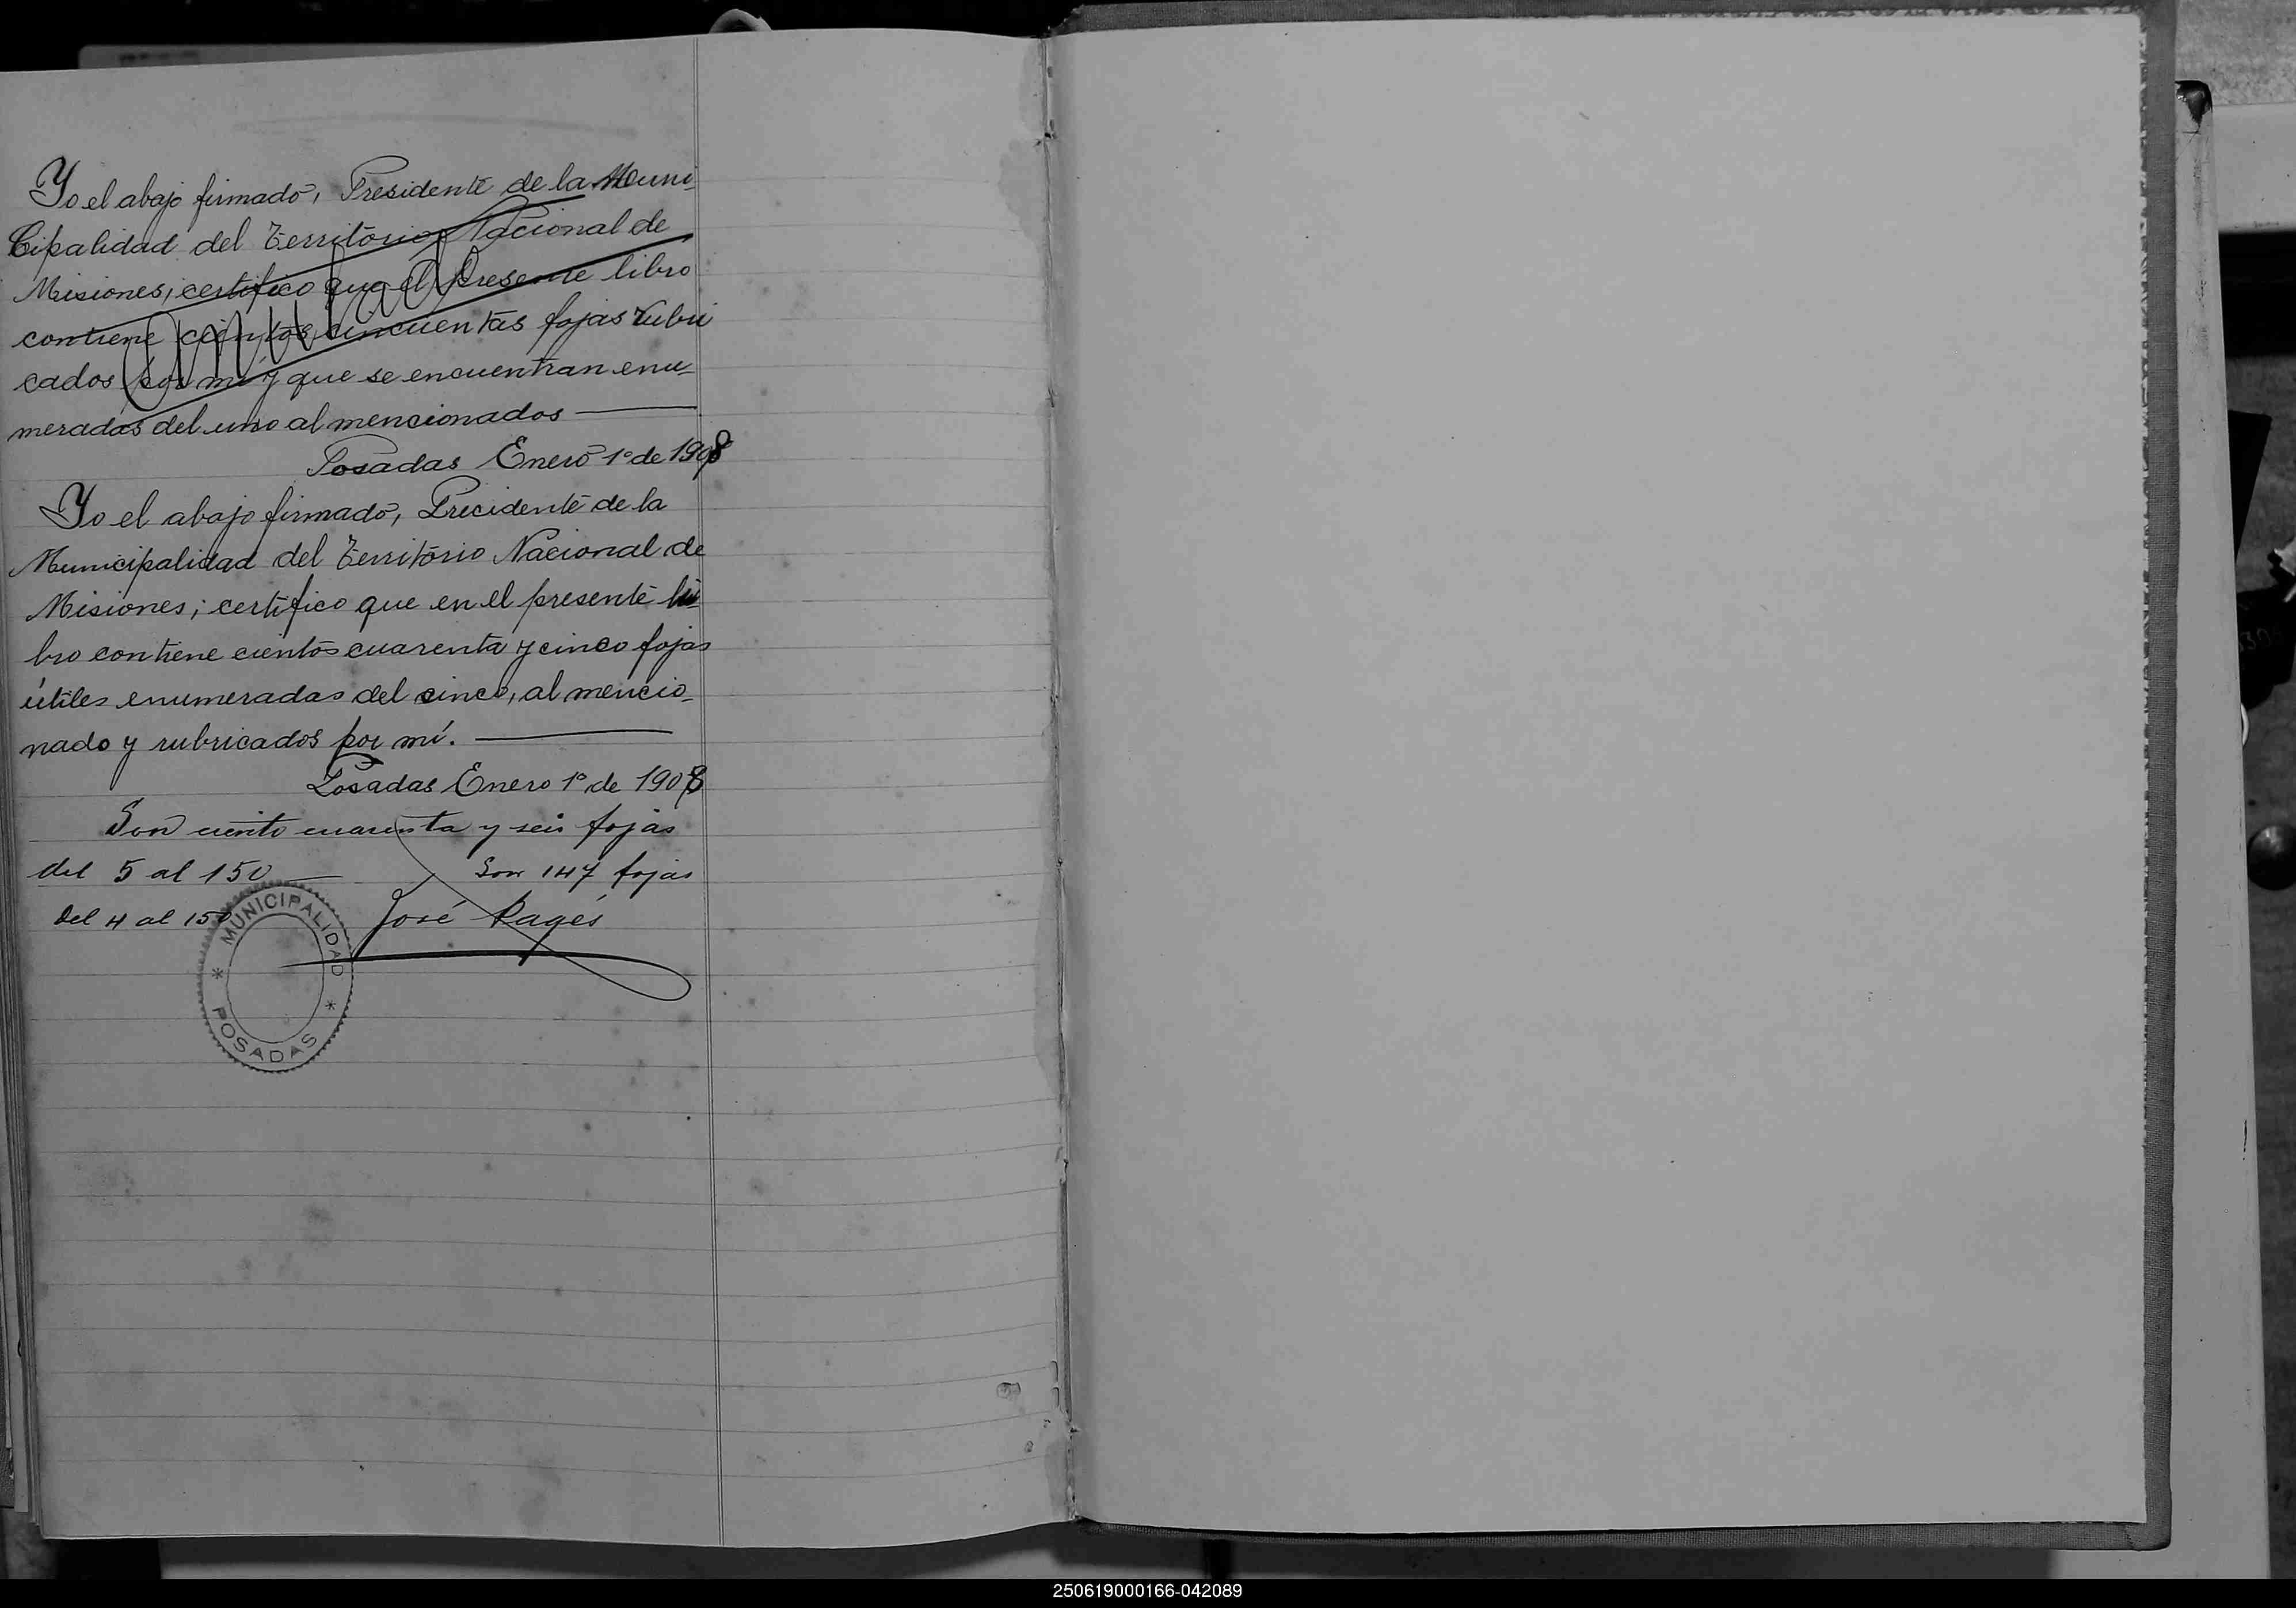 Yo el abajo firmado, Presidente de la Muni-
cipalidad del Territorio Nacional de
Misiones, certifico que el presente libro
contiene cientos cincuentas fojas rubri
cados por mi y que se encuentran enu-
meradas del uno al mencionados
Posadas Enero 1º de 1908
Yo el abajo firmado, Precidente de la
Municipalidad del Territorio Nacional de
Misiones; certifico que en el presente li-
bro contiene cientos cuarenta y cinco fojas
útiles enumeradas del cinco, al mencio-
nado y rubricados por mí.
Posadas Enero 1º de 1908
Son ciento cuarenta y seis fojas
del 5 al 150
Son 147 fojas
del 4 al 150
José Pagés
MUNICIPALIDAD
* POSADAS *
250619000166-042089